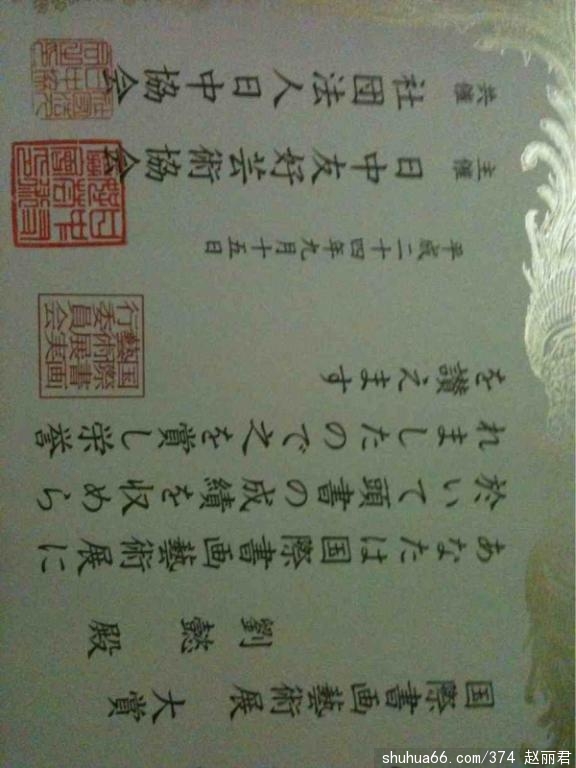 国際書画藝術展 大賞
劉 懿 殿
あなたは国際書画藝術展に
於いて頭書の成績を収めら
れましたので之を賞し栄誉
を讃えます
国際書画
藝術展実
行委員会
平成二十四年九月十五日
主催 日中友好芸術協会
共催 社団法人日中協会
shuhua66.com/374 赵丽君